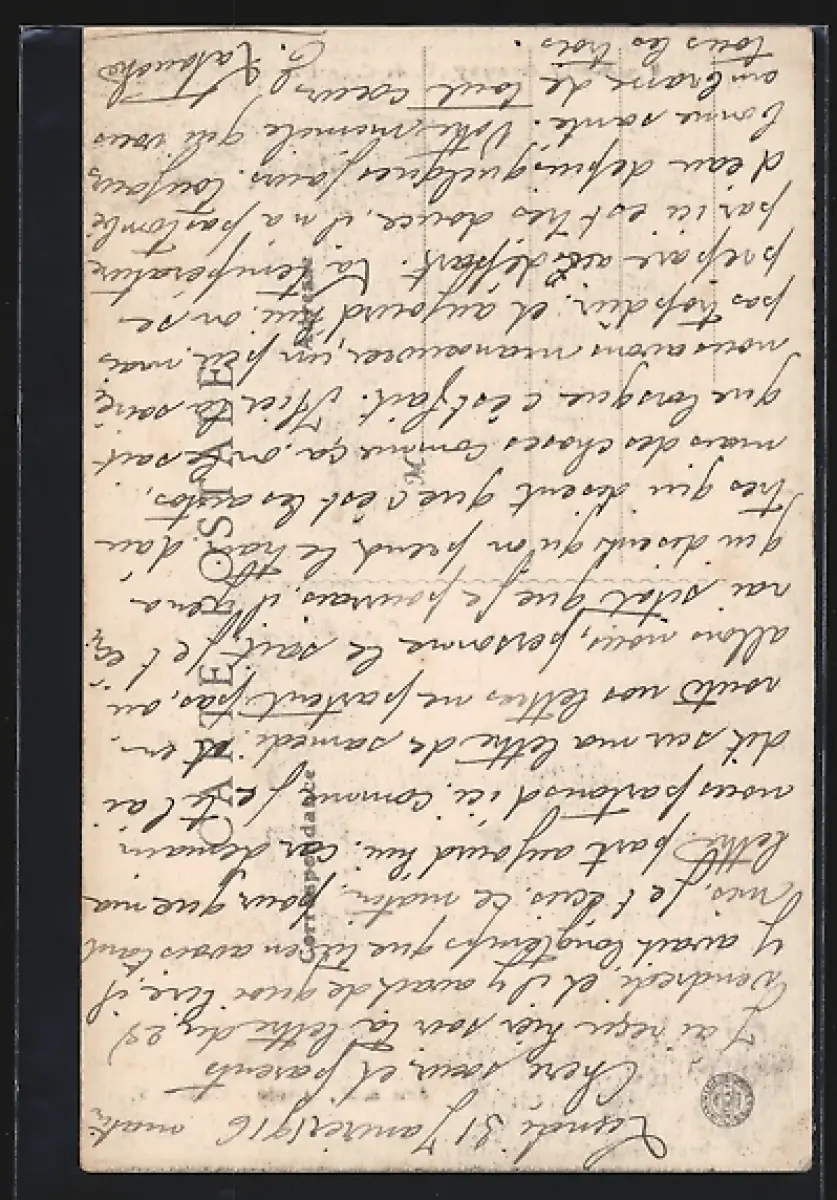 Lundi 31 Janvier 1916 matin
Chère sœur et parents
J'ai reçu hier soir ta lettre du 28
Vendredi, et il y avait de quoi lire, il
y avait longtemps que tu en avais tant
mis, je t'écris ce matin, pour que ma
lettre part aujourd'hui, car demain
nous partons d'ici, comme je te l'ai
dit sur ma lettre de samedi, et en
route nos lettres ne partent pas, où
allons nous, personne le sait,
sitôt que je pourrais, il y en a
qui disent qu'on prend le train, d'au
tres qui disent que c'est les autos,
mais des choses comme ça, on le sait
que lorsque c'est fait. Hier la soirée
nous avons manœuvrer, un peu, mais
pas trop dur, et aujourd'hui, on se
prepare au départ. La température
par ici est très douce, il n'a pas tombé
d'eau depuis quelques jours. toujours
bonne santé. Votre qui vous
embrasse de tout cœur
tous les trois.
CARTE POSTALE
Correspondance
Adresse
M